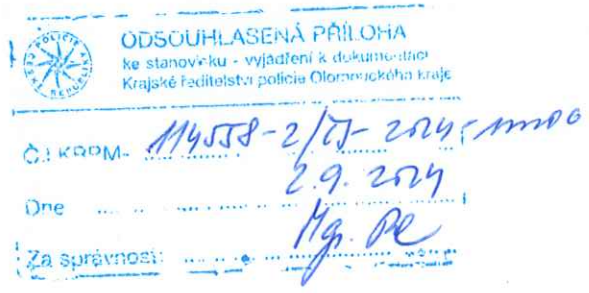 POLICIE ČESKÉ REPUBLIKY
ODSOUHLASENÁ PŘÍLOHA
ke stanovisku - vyjádření k dokumentaci
Krajské ředitelství policie Olomouckého kraje
Č.J. KRPM- 114558-2/ČJ-2024-
Dne 2.9.2024
Za správnost: Mgr.